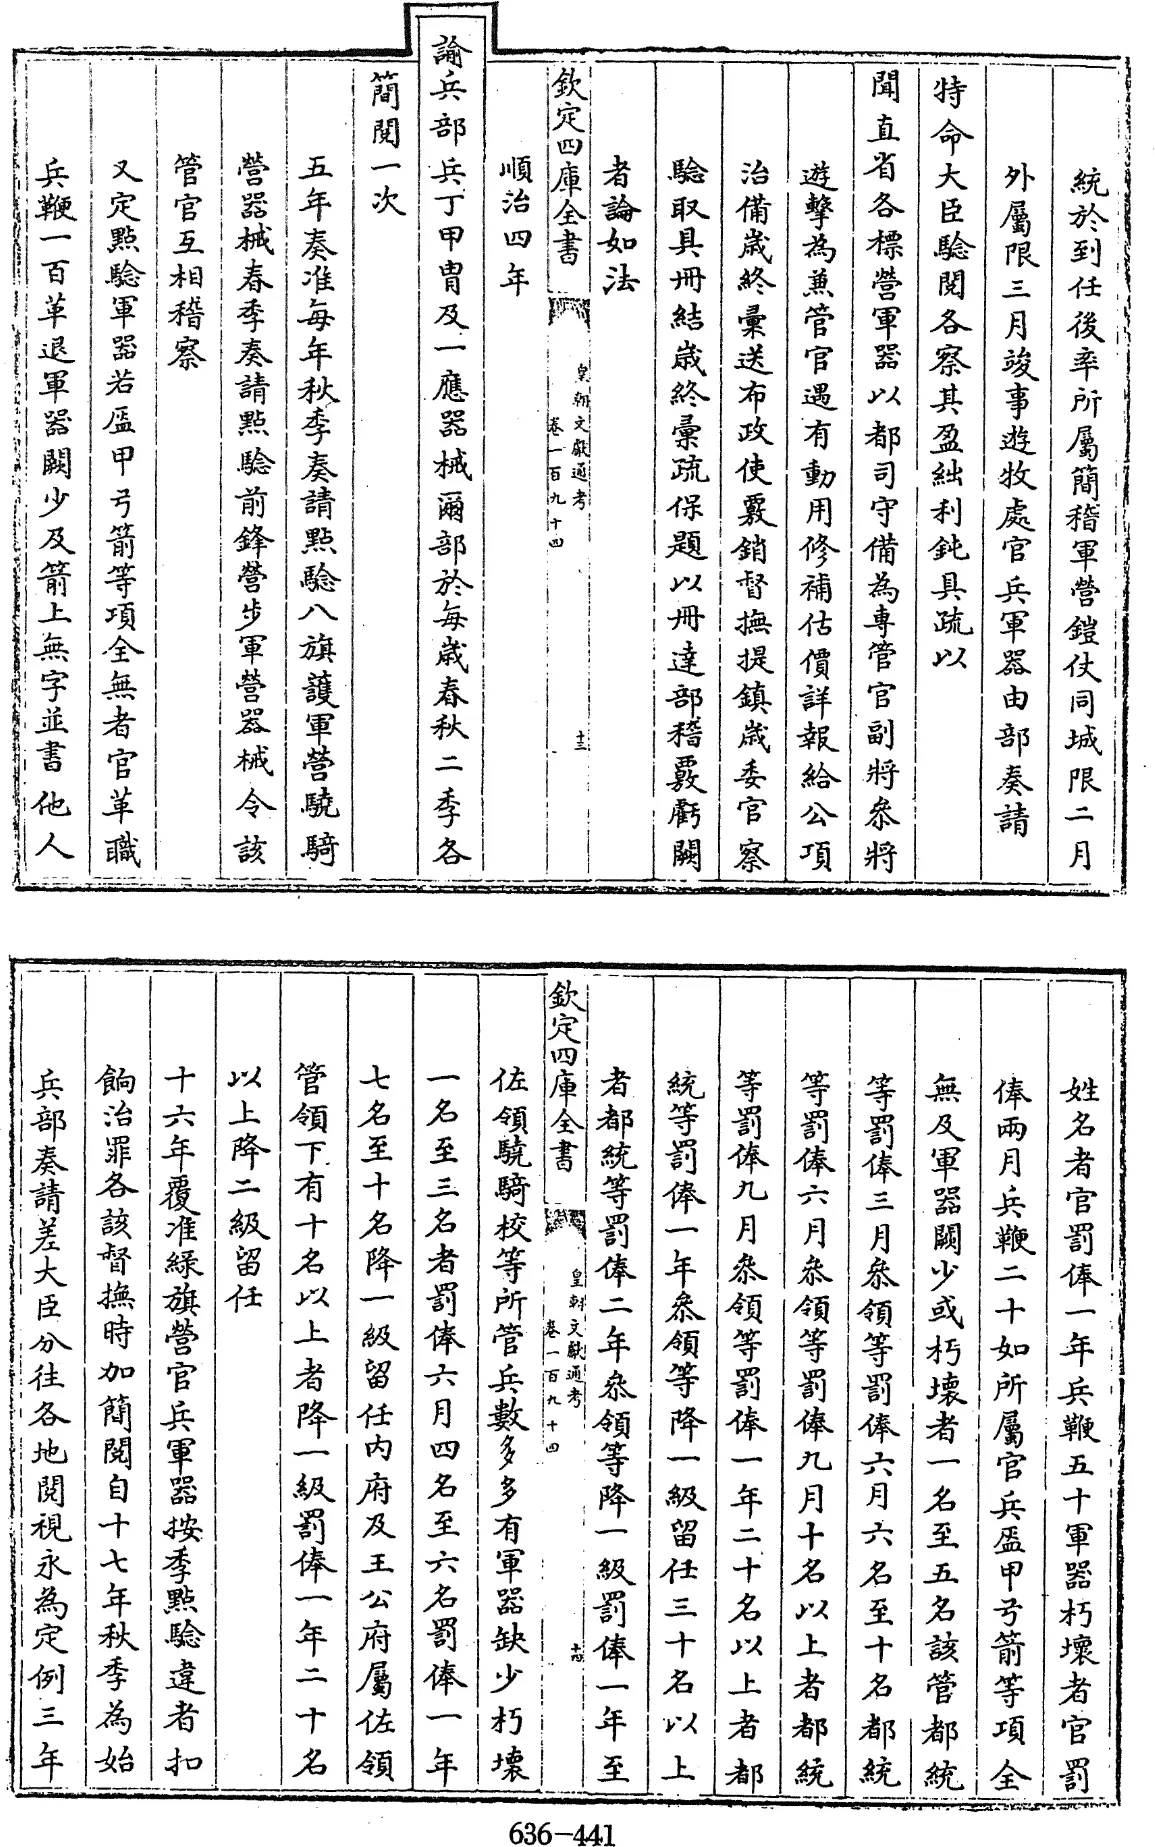 統於到任後率所屬簡稽軍營鎧仗同城限二月
外屬限三月竣事遊牧處官兵軍器由部奏請
特命大臣驗閱各察其盈絀利鈍具疏以
聞直省各標營軍器以都司守備為專管官副將叅將
遊擊為兼管官遇有動用修補估價詳報給公項
治備歲終彙送布政使覈銷督撫提鎮歲委官察
驗取具冊結歲終彙疏保題以冊達部稽覈虧闕
者論如法
欽定四庫全書
皇朝文獻通考
卷一百九十四
十三
順治四年
諭兵部兵丁甲冑及一應器械爾部於每歲春秋二季各
簡閱一次
五年奏准每年秋季奏請點驗八旗護軍營驍騎
營器械春季奏請點驗前鋒營步軍營器械令該
管官互相稽察
又定點驗軍器若盔甲弓箭等項全無者官革職
兵鞭一百革退軍器闕少及箭上無字並書他人
姓名者官罰俸一年兵鞭五十軍器朽壞者官罰
俸兩月兵鞭二十如所屬官兵盔甲弓箭等項全
無及軍器闕少或朽壞者一名至五名該管都統
等罰俸三月叅領等罰俸六月六名至十名都統
等罰俸六月叅領等罰俸九月十名以上者都統
等罰俸九月叅領等罰俸一年二十名以上者都
統等罰俸一年叅領等降一級留任三十名以上
者都統等罰俸二年叅領等降一級罰俸一年至
欽定四庫全書
皇朝文獻通考
卷一百九十四
十四
佐領驍騎校等所管兵數多多有軍器缺少朽壞
一名至三名者罰俸六月四名至六名罰俸一年
七名至十名降一級留任內府及王公府屬佐領
管領下有十名以上者降一級罰俸一年二十名
以上降二級留任
十六年覆准綠旗營官兵軍器按季點驗違者扣
餉治罪各該督撫時加簡閱自十七年秋季為始
兵部奏請差大臣分往各地閱視永為定例三年
636-441